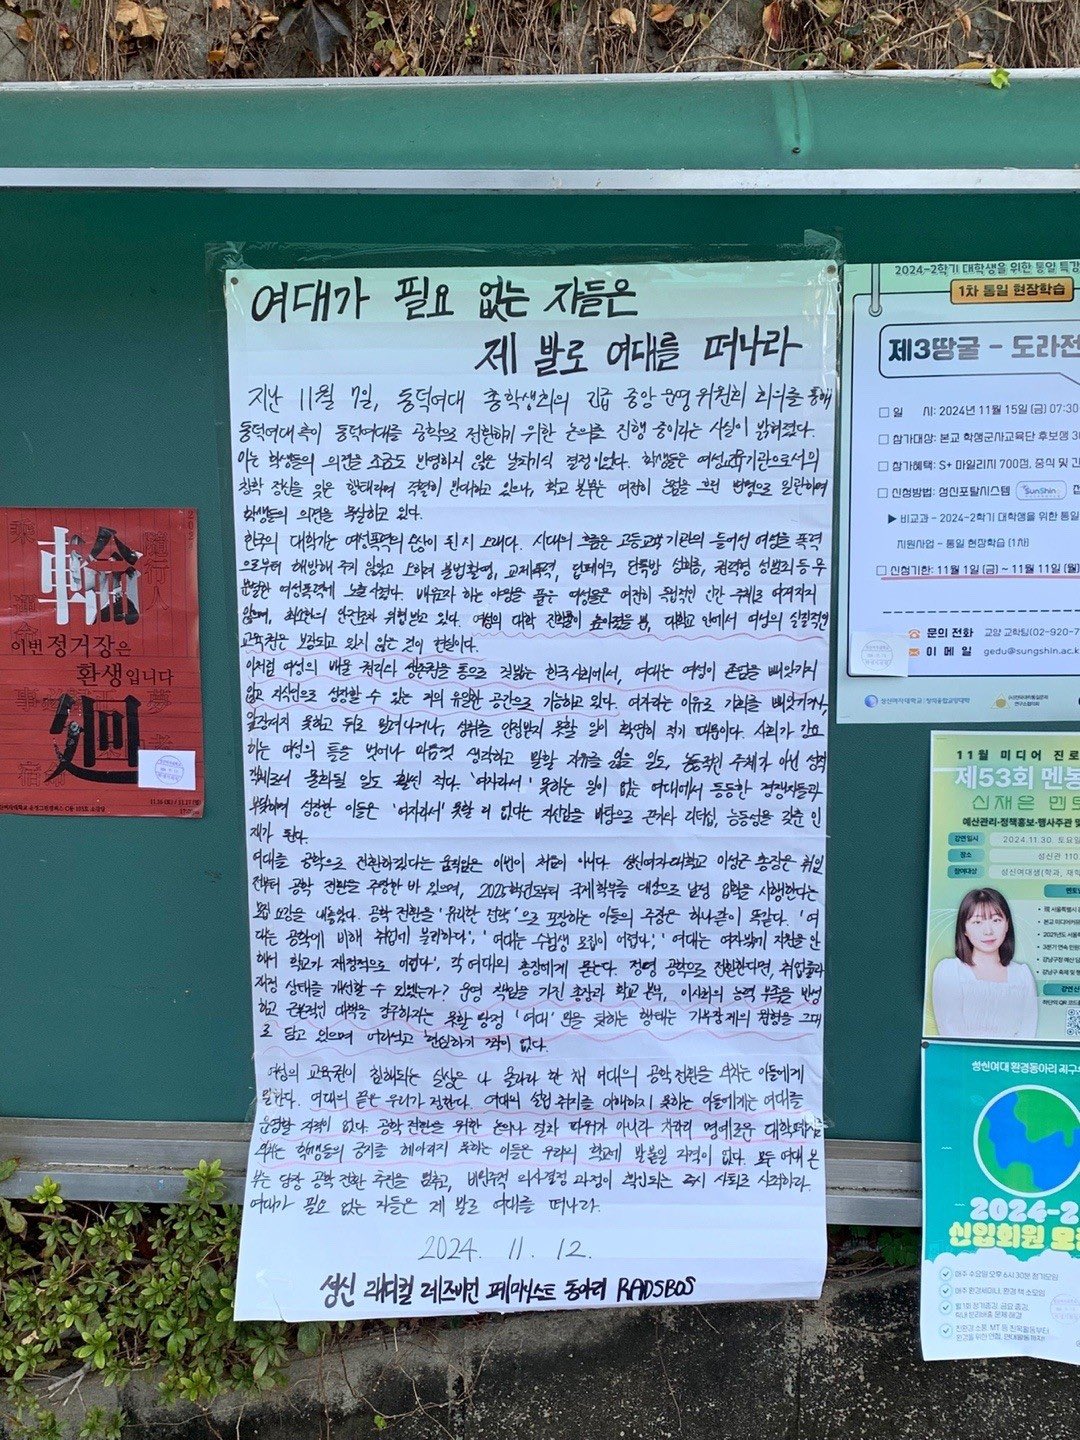 여대가 필요 없는 자들은
제 발로 여대를 떠나라
지난 11월 7일, 동덕여대 총학생회의 긴급 중앙운영위원회 회의를 통해
동덕여대 측이 동덕여대를 공학으로 전환하기 위한 논의를 진행 중이라는 사실이 밝혀졌다.
이는 학생들의 의견을 조금도 반영하지 않은 날치기식 결정이었다. 학생들은 여성교육기관으로서의
창학 정신을 잊은 행태라며 격렬히 반대하고 있으나, 학교 본부는 여전히 논점을 흐린 변명으로 일관하며
학생들의 의견을 묵살하고 있다.
한국의 대학가는 여성폭력의 온상이 된 지 오래다. 시대의 흐름은 고등교육기관에 들어선 여성을 폭력
으로부터 해방해 주지 않았고 오히려 불법촬영, 교제폭력, 딥페이크, 단톡방 성희롱, 권력형 성범죄 등 무
분별한 여성폭력에 노출시켰다. 배움자 하는 야망을 품은 여성들은 여전히 독립적인 인간 주체로 여겨지지
않으며, 최소한의 안전조차 위협받고 있다. 여성의 대학 진학률이 높아졌을 뿐, 대학교 안에서 여성의 실질적인
교육권은 보장되고 있지 않은 것이 현실이다.
이처럼 여성의 배울 권리와 생존권을 통으로 짓밟는 한국 사회에서, 여대는 여성이 존엄을 빼앗기지
않고 자신으로 성장할 수 있는 거의 유일한 공간으로 기능하고 있다. 여자라는 이유로 기회를 빼앗기거나,
앞장서지 못하고 뒤로 밀려나거나, 성취를 인정받지 못할 일이 확연히 적기 때문이다. 사회가 강요
하는 여성의 틀을 벗어나 마음껏 생각하고 말할 자유를 잃을 일도, 능동적인 주체가 아닌 성적
객체로서 물화될 일도 훨씬 적다. '여자라서' 못하는 일이 없는 여대에서 동등한 경쟁자들과
부딪히며 성장한 이들은 '여자라서' 못할 리 없다는 자신감을 바탕으로 끈기와 리더십, 능동성을 갖춘 인
재가 된다.
여대를 공학으로 전환하겠다는 움직임은 이번이 처음이 아니다. 성신여자대학교 이성근 총장은 취임
전부터 공학 전환을 주장한 바 있으며, 2025학년도부터 국제학부를 대상으로 남성 입학을 시행한다는
모집 요강을 내놓았다. 공학 전환을 '유리한 전략'으로 포장하는 이들의 주장은 하나같이 똑같다. '여
대는 공학에 비해 취업에 불리하다', '여대는 수험생 모집이 어렵다', '여대는 여자밖에 지원을 안
해서 학교가 재정적으로 어렵다'. 각 여대의 총장에게 묻는다. 정녕 공학으로 전환한다면, 취업률과
재정 상태를 개선할 수 있겠는가? 운영 책임을 가진 총장과 학교 본부, 이사회의 능력 부족을 반성
하고 근본적인 대책을 강구하지는 못할 망정 '여대'만을 탓하는 행태는 가부장제의 원형을 그대
로 담고 있으며 어리석고 한심하기 짝이 없다.
여성의 교육권이 침해되는 실상은 나 몰라라 한 채 여대의 공학 전환을 외치는 이들에게
말한다. 여대의 끝은 우리가 정한다. 여대의 설립 취지를 이해하지 못하는 이들에게는 여대를
운영할 자격이 없다. 공학 전환을 위한 논의나 절차 따위가 아니라 차라리 명예로운 대학 폐교를
외치는 학생들의 긍지를 헤아리지 못하는 이들은 우리의 학교에 발붙일 자격이 없다. 모든 여대 본
부는 당장 공학 전환 추진을 멈추고, 비민주적 의사결정 과정이 확인되는 즉시 사퇴로 사죄하라.
여대가 필요 없는 자들은 제 발로 여대를 떠나라.
2024. 11. 12.
성신 래디컬 레즈비언 페미니스트 동아리 RADSBOS
輪
이번 정거장은
환생입니다
廻
2024-2학기 대학생을 위한 통일 특강
1차 통일 현장학습
제3땅굴 - 도라전
□ 일 시: 2024년 11월 15일 (금) 07:30
□ 참가대상: 본교 학생군사교육단 후보생 3
□ 참가혜택: S+ 마일리지 700점, 중식 및 간
□ 신청방법: 성신포탈시스템 SunShin 접
▶ 비교과 - 2024-2학기 대학생을 위한 통일
지원사업 - 통일 현장학습 (1차)
□ 신청기한: 11월 1일 (금) ~ 11월 11일 (월)
문의 전화 교양 교학팀(02-920-7
이 메일 gedu@sungshin.ac.k
11월 미디어 진로
제53회 멘토
신재은 멘토
예산관리·정책홍보·행사주관 및
강연일시 2024.11.30. 토요일
장소 성신관 110
참여대상 성신여대생(학과, 재학
성신여대 환경동아리 지구
2024-2
신입회원 모
매주 수요일 오후 6시 30분 정기모임
매주 환경세미나, 환경 책 소모임